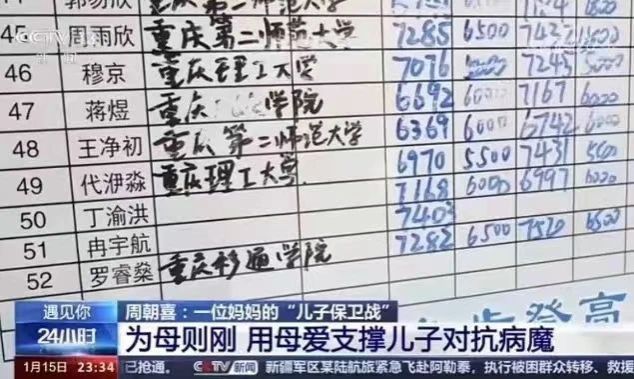 CCTV
45 周雨欣 重庆第二师范大学 7285 6500 742
46 穆京 重庆理工大学 7076 7243 5000
47 蒋煜 重庆 学院 6692 7167 6000
48 王净初 重庆第二师范大学 6369 6000 6742 6000
49 代洢淼 重庆理工大学 6970 5500 7431
50 丁渝洪 7168 6000 6997 6000
51 冉宇航 7403
52 罗睿燊 重庆移通学院 7282 6500 7520 6500
步登高
遇见你
24小时
周朝喜：一位妈妈的“儿子保卫战”
为母则刚 用母爱支撑儿子对抗病魔
1月15日 23:34 已抢通。 CCTV新闻 新疆军区某陆航旅紧急飞赴阿勒泰，执行被困群众转移、救援